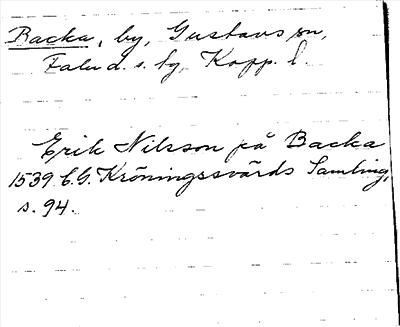 Backa, by, Gustavs sn,
Falu d. s. fg, Kopp. l.
Erik Nilsson på Backa
1539 C.G. Kröningssvärds Samling,
s. 94.